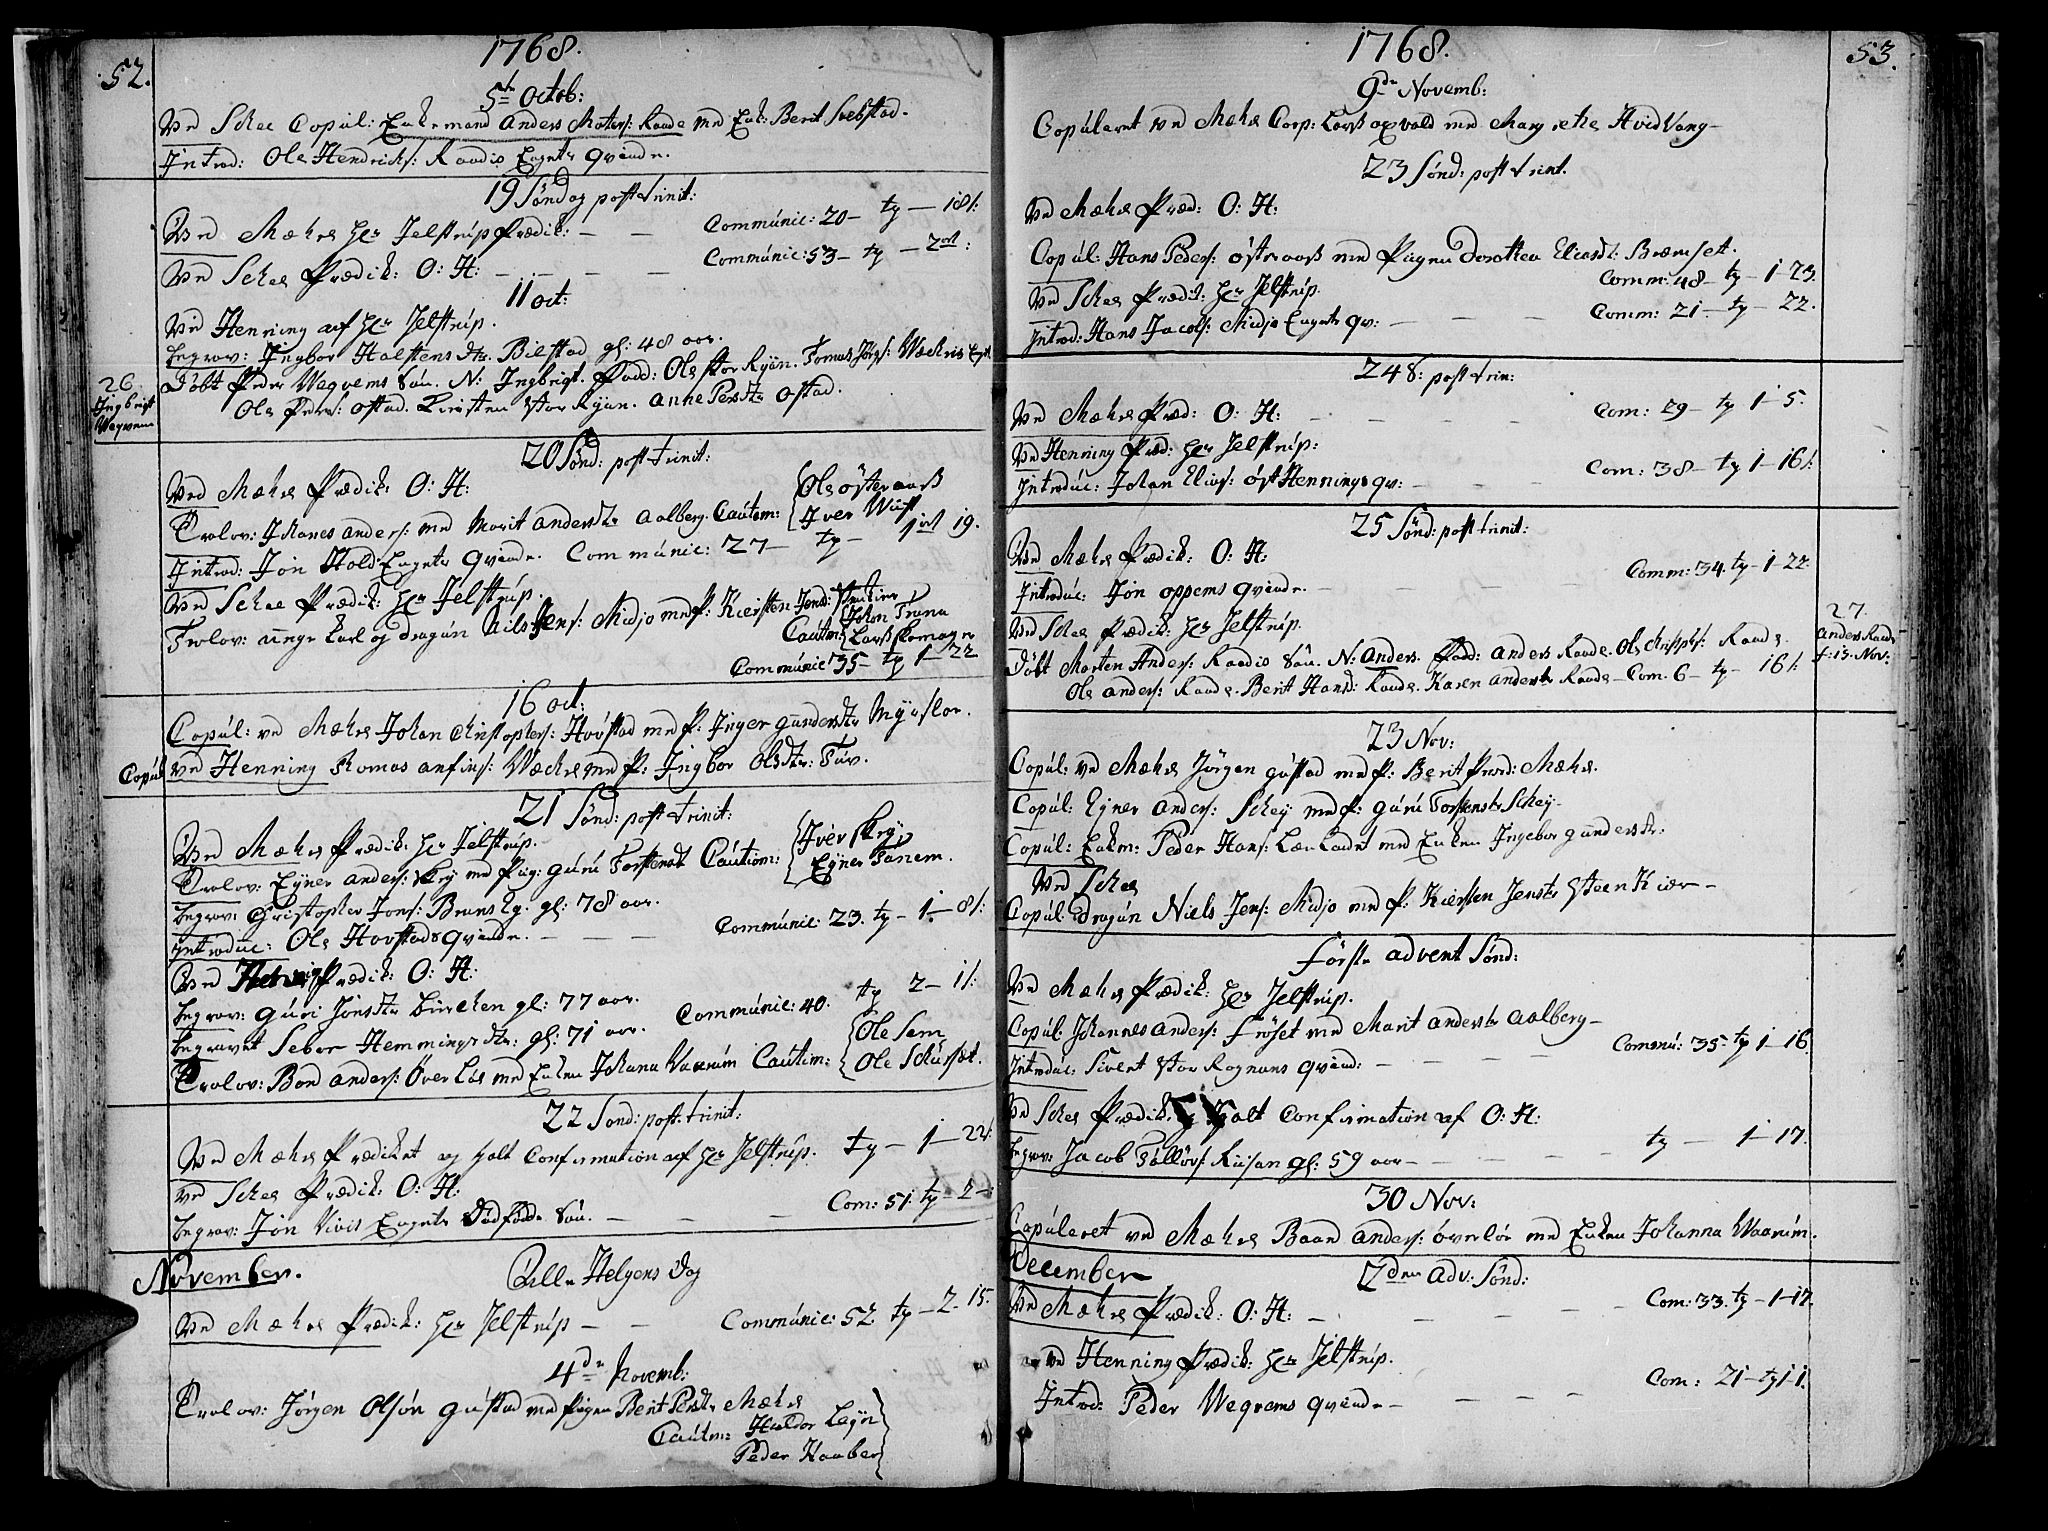 52.
1768.
5te Octob:
Ved Schee Copúl: Enkemand Anders Mortens: Raade med Enk: Berit Svebstad.
Introd: Ole Hendrichs: Raadis Engets Qvinde.
19 Söndag post trinit:
Ved Mæhre Hr Jelstrúp Prædik: — — Commúnic: 20 — ty — 18 s:
Ved Schee Prædik: O: H: — — — — Commúnic: 53 — ty — 2 ort:
11 oct:
Ved Henning af Hr Jelstrúp.
Begrav: Ingbor Halstensdtr Bilstad gl: 48 aar.
26.
Ingbrigt
Wegvem
Döbt Peder Wegvems Sön. N: Ingbrigt. Fadd: Ole stor Ryan. Tomas Jörgs: Wæhres Eget
Ole Peders: Ostad. Kirsten Stor Ryan. Anne Persdtr Ostad.
20 Sönd: post trinit:
Ved Mæhre Prædik: O: H:
Trolov: Johanes Anders: med Marit Andersdtr Aalberg. Cautom: Ole österaass
Iver Wúst
Introd: Jon Hold Engets Qvinde. Commúnic: 27 — ty — 1 ort 19.
Ved Schee Prædik: Hr Jelstrúp.
Trolov: unge karl og dragún Nils Jens: Midjo med P: Kiersten Jensd: Steekier
Cautm: Johan Trana
Lars Skomager
Commúnic: 35 — ty 1 — 22
16 oct:
Copúl: ved Mæhre Johan Christophers: Hovstad med P: Inger Gundersdtr Myhrslor.
Copúl ved Henning Romas anfins: Wæhre med P: Ingbor Olsdtr: Túv.
21 Sönd: post trinit:
Ved Mæhre Prædik: Hr Jelstrúp.
Trolov: Ejner Anders: Skey med Pig: Gúrú Torstensdtr Cautiom: Iver Skey
Ejner Tanem.
Begrav: Christopher Jons: Bruns Eg. gl: 78 aar.
Introduc: Ole Hovstads Qvinde. — — — Commúnic: 23. ty — 1 — 8 s:
Ved Henning Prædik: O: H:
Begrav: Gúri Jonsdtr Birchen gl: 77 aar. Commúnic: 40. ty 2 — 1 s:
Begravet Sebor Hemmingsdtr: gl: 71 aar.
Trolov: Bord Anders: Överlös med Enken Johana Warúm Cautim: Ole Sem
Ole Schúrset.
22 Sond: post trinit:
Ved Mæhre Prædiket og holt Confirmation af Hr Jelstrúp. ty — 1 — 22
ved Schee Prædik: O: H: Com: 51. ty — 2 —
Begrav: Jon Vivis Engets Dödföde Sön. — — —
November.
Alle Helgens Dag
Ved Mæhre Prædik: Hr Jelstrúp — — Commúnic: 52 ty — 2 — 15.
4de Novemb:
Trolov: Jörgen Olsön Gústad med Pigen Berit Persdtr Mæhre
Cautm: Haldor Leyn
Peder Haaber
53.
1768.
9de Novemb:
Copúleret ved Mæhre Corp: Lars oxvold med Margrethe Hvid Vang —
23 Sönd: post trint.
Ved Mæhre Præd: O: H:
Copúl: Hans Peders: österaas med Pigen Dorothea Eliasdt: Bræmset.
Ved Schee Prædik: Hr Jelstrúp. Comm: 48 — ty — 1 — 23.
Introd: Hans Jacobs: Midjo Engets Qv: — — — Comm: 21 — ty — 22.
24 S: post trin:
Ved Mæhre Præd: O: H: — — — — Com: 29 — ty 1 — 5.
Ved Henning Præd: Hr Jelstrúp:
Introdúc: Johan Elias: öst Hennings qv: — — — Com: 38 — ty 1 — 16 s:
25 Sönd: post trinit:
Ved Mæhre Prædik: O: H:
Introdúc: Jon oppems Qvinde. — — — Comm: 34. ty — 1 — 22.
Ved Schee Prædik: Hr Jelstrúp.
27.
Anders Raade
f: 13. Nov:
Döbt Morten Anders: Raadis Sön. N: Anders. Fadd: Anders Raade. Ole Christophs: Raade.
Ole Anders: Raade. Berit Hansd: Raade. Karen Andersdtr Raade — Com. 6 — ty — 16 s:
23 Nov:
Copúl: ved Mæhre Jörgen Gústad med P: Berit Persd: Mæhre.
Copúl: Ejner Anders: Schey med P: Gúrú Torstensdtr Schey —
Copúl: Enkm: Peder Hans: Lærladet med Enken Ingebor Gundersdtr:
Ved Schee
Copúl: dragún Niels Jens: Midjo med P: Kiersten Jensdtr Steen Kiær —
Förste Advent Sönd:
Ved Mæhre Prædik: Hr Jelstrúp.
Copúl: Johannes Anders: Fröset med Marit Andersdtr Aalberg —
Introdúc: Sivert Stor Rognans Qvinde: — — — — Comnú: 35 — ty 1 — 16.
Ved Schee Prædik: og holt Confirmation af O: H:
Begrav: Jacob Tollövs: Riisan gl: 59 aar — — — — ty — 1 — 17.
30 Nov:
Copúleret ved Mæhre Baard Anders: överlös med Enken Johanna Waarúm.
December
2den Adv: Sönd:
Ved Mæhre Prædik: O: H: — — — — Com: 33. ty — 1 — 17.
ved Henning Prædik: Hr Jelstrúp.
Introd: Peder Wegvems Qvinde — — — — Com: 21 — ty 1 — 1.